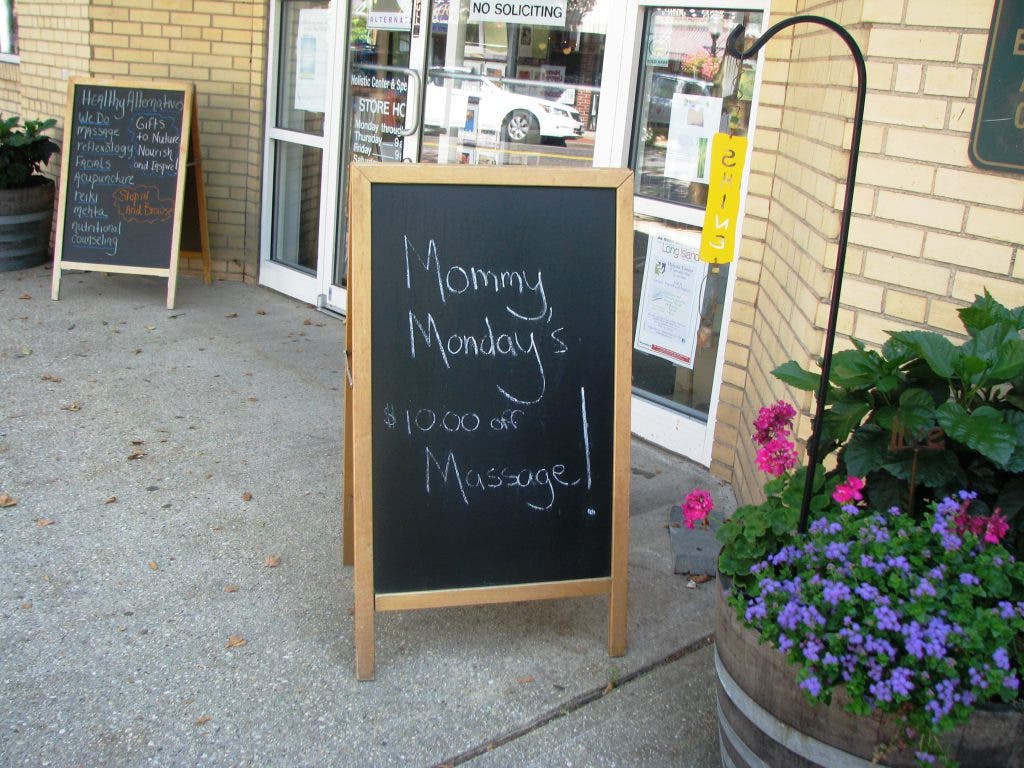 NO SOLICITING
ALTERNA
Holistic Center & Spa
STORE HO
Monday through
Thursday
Friday
Healthy Alternative
We Do
massage
reflexology
Facials
Acupuncture
reiki
mehta
nutritional
counseling
Gifts
to Nurture
Nourish
and Inspire!
Stop in
And Browse
Mommy
Monday's
$10.00 off
Massage!
Long Island